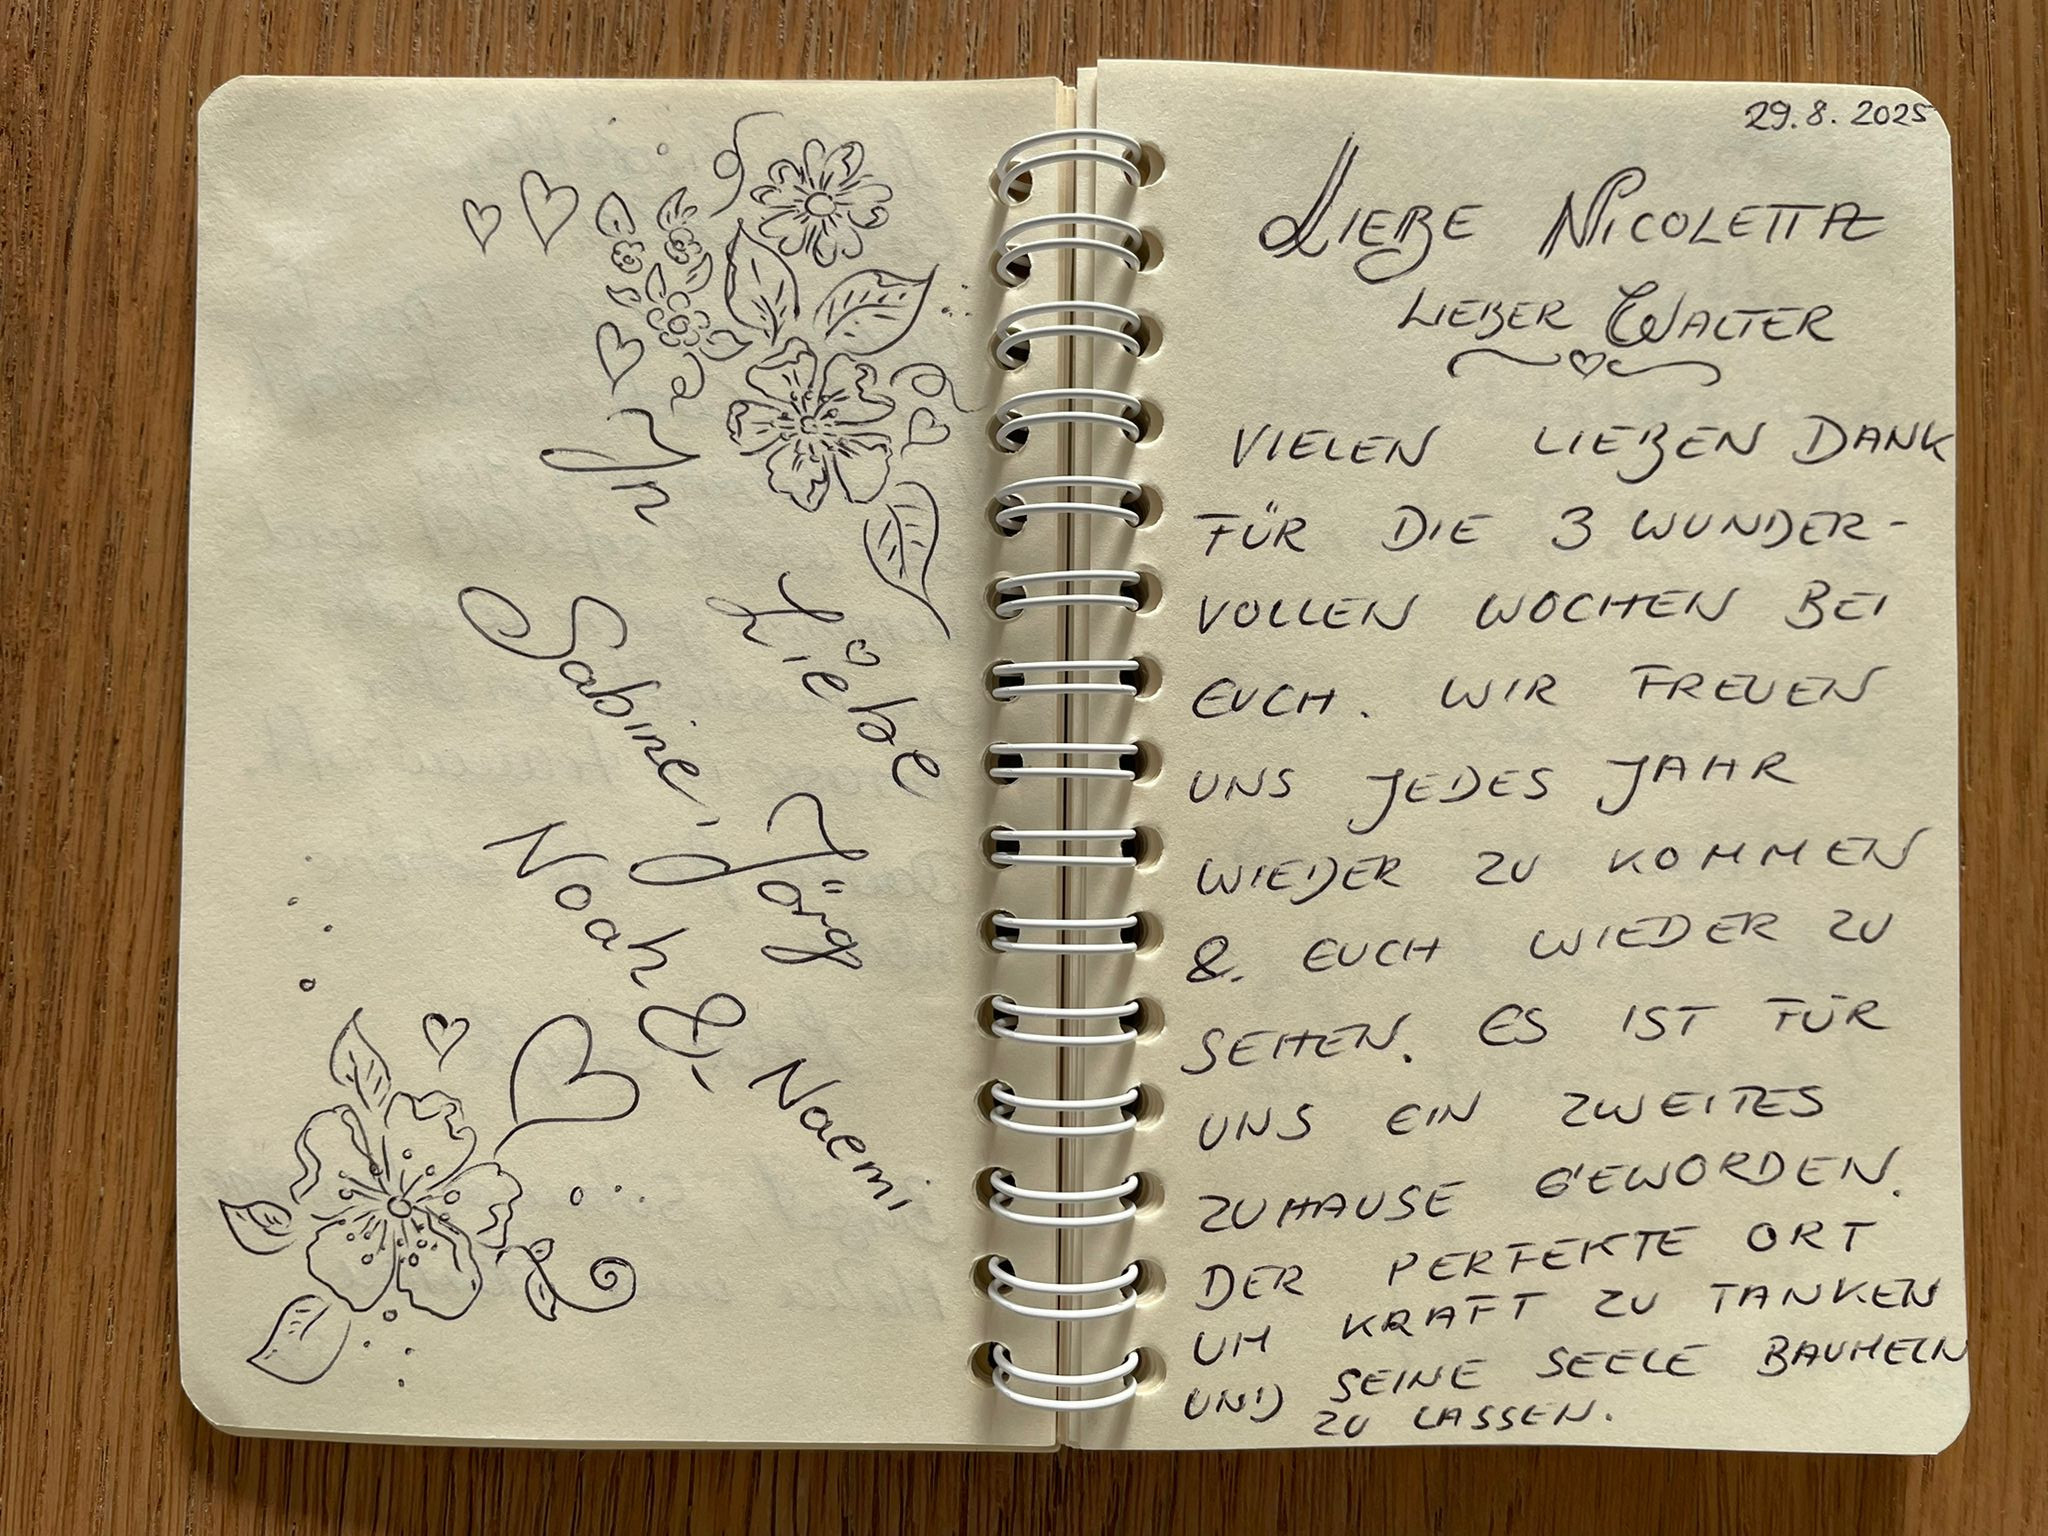 29.8.2025
LIEBE NICOLETTA
LIEBER WALTER
VIELEN LIEBEN DANK
FÜR DIE 3 WUNDER-
VOLLEN WOCHEN BEI
EUCH. WIR FREUEN
UNS JEDES JAHR
WIEDER ZU KOMMEN
&. EUCH WIEDER ZU
SEHEN. ES IST FÜR
UNS EIN ZWEITES
ZUHAUSE GEWORDEN.
DER PERFEKTE ORT
UM KRAFT ZU TANKEN
UND SEINE SEELE BAUMELN
ZU LASSEN.
In Liebe
Sabine, Jörg
Noah &, Naemi